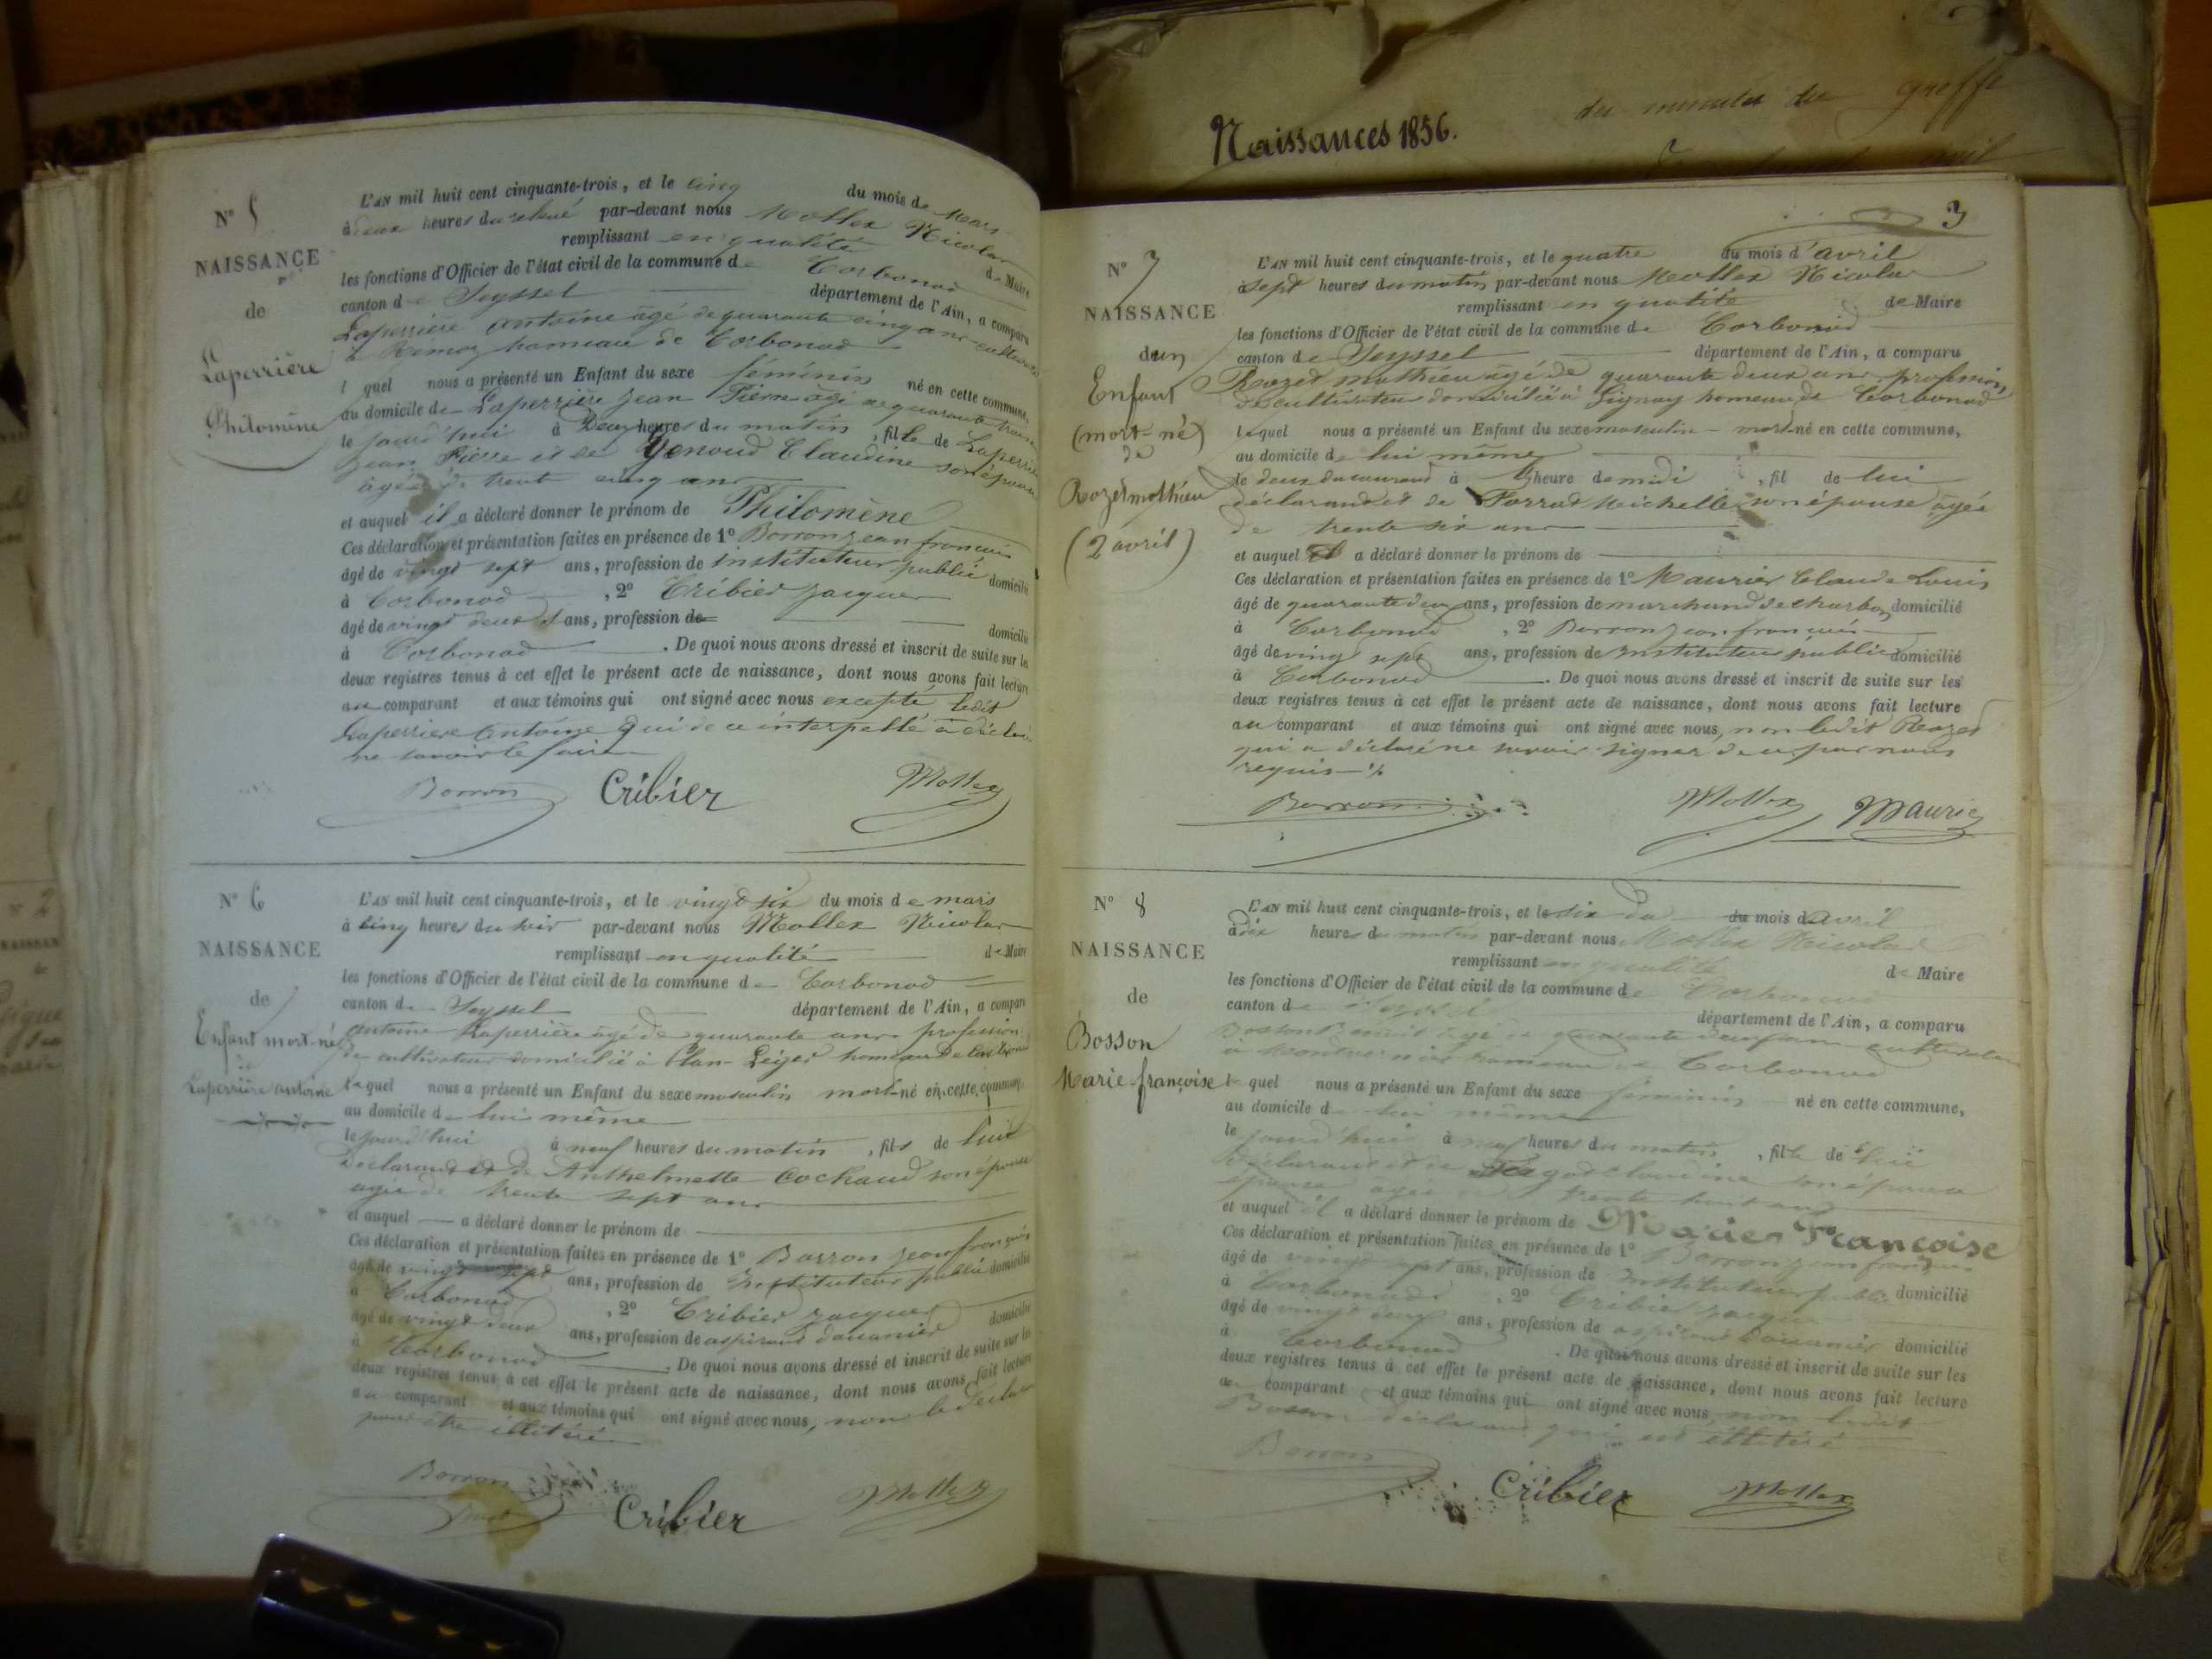 Naissances 1856.
des minutes du greffe
N° 5
NAISSANCE
de
Laperrière
Philomène
L'AN mil huit cent cinquante-trois, et le cinq du mois de Mars
à deux heures du par-devant nous Mollex Nicolas
remplissant en qualité de Maire
les fonctions d'Officier de l'état civil de la commune de Corbonod
canton de Seyssel département de l'Ain, a comparu
Laperrière antoine âgé de quarante cinq ans cultivateur
à Rémoz hameau de Corbonod
l quel nous a présenté un Enfant du sexe féminin né en cette commune,
au domicile de Laperrière Jean Pierre âgé de quarante trois
le jourd'hui à Deux heures du matin, fille de Laperrière
Jean Pierre et de Genoud Claudine son épouse
âgée de trente cinq ans
et auquel il a déclaré donner le prénom de Philomène
Ces déclaration et présentation faites en présence de 1° Borron jean françois
âgé de vingt sept ans, profession de instituteur public domicilié
à Corbonod, 2° Cribier jacques
âgé de vingt deux ans, profession de domicilié
à Corbonod. De quoi nous avons dressé et inscrit de suite sur les
deux registres tenus à cet effet le présent acte de naissance, dont nous avons fait lecture
au comparant et aux témoins qui ont signé avec nous excepté ledit
Laperriere antoine qui de ce interpellé a déclaré
ne savoir le faire
Borron Cribier Mollex
N° 6
NAISSANCE
de
Enfant mort-né
de
Laperrière antoine
L'AN mil huit cent cinquante-trois, et le vingt six du mois de mars
à cinq heures du soir par-devant nous Mollex Nicolas
remplissant en qualité de Maire
les fonctions d'Officier de l'état civil de la commune de Corbonod
canton de Seyssel département de l'Ain, a comparu
antoine Laperrière âgé de quarante ans profession
de cultivateur domicilié à hameau de Corbonod
lequel nous a présenté un Enfant du sexe masculin mort-né en cette commune,
au domicile de lui même
le jourd'hui à neuf heures du matin, fils de lui
déclarant et de Anthelmette Cochaud son épouse
agée de trente sept ans
et auquel — a déclaré donner le prénom de
Ces déclaration et présentation faites en présence de 1° Borron jean françois
âgé de vingt sept ans, profession de Instituteur public domicilié
à Corbonod, 2° Cribier jacques
âgé de vingt deux ans, profession de aspirant douanier domicilié
à Corbonod. De quoi nous avons dressé et inscrit de suite sur les
deux registres tenus à cet effet le présent acte de naissance, dont nous avons fait lecture
au comparant et aux témoins qui ont signé avec nous, non le déclarant
pour être illitéré
Borron Cribier Mollex
3
N° 7
NAISSANCE
d'un
Enfant
(mort-né)
de
Rozet mathieu
(2 avril)
L'AN mil huit cent cinquante-trois, et le quatre du mois d'avril
à sept heures du matin par-devant nous Mollex Nicolas
remplissant en qualité de Maire
les fonctions d'Officier de l'état civil de la commune de Corbonod
canton de Seyssel département de l'Ain, a comparu
Rozet mathieu âgé de quarante deux ans profession
de cultivateur domicilié à Gignay hameau de Corbonod
lequel nous a présenté un Enfant du sexe masculin mort-né en cette commune,
au domicile de lui même
le deux du courant à heure de midi, fil de lui
déclarant et de Michelle son épouse âgée
de trente six ans
et auquel a déclaré donner le prénom de
Ces déclaration et présentation faites en présence de 1° Maurier Claude Louis
âgé de quarante deux ans, profession de marchand de charbon domicilié
à Corbonod, 2° Borron jean françois
âgé de vingt sept ans, profession de Instituteur public domicilié
à Corbonod. De quoi nous avons dressé et inscrit de suite sur les
deux registres tenus à cet effet le présent acte de naissance, dont nous avons fait lecture
au comparant et aux témoins qui ont signé avec nous, non ledit Rozet
qui a déclaré ne savoir signer de ce par nous
requis
Borron Mollex Maurier
N° 8
NAISSANCE
de
Bosson
Marie-françoise
L'AN mil huit cent cinquante-trois, et le six du mois d'avril
à dix heures du matin par-devant nous Mollex Nicolas
remplissant en qualité de Maire
les fonctions d'Officier de l'état civil de la commune de Corbonod
canton de Seyssel département de l'Ain, a comparu
Bosson Benoit âgé de quarante deux ans cultivateur
à hameau de Corbonod
lequel nous a présenté un Enfant du sexe féminin né en cette commune,
au domicile de lui même
le jourd'hui à neuf heures du matin, fille de lui
déclarant et de Claudine son épouse
épouse âgée de trente huit ans
et auquel il a déclaré donner le prénom de Marie Françoise
Ces déclaration et présentation faites en présence de 1° Borron jean françois
âgé de vingt sept ans, profession de Instituteur public domicilié
à Corbonod, 2° Cribier jacques
âgé de vingt deux ans, profession de aspirant douanier domicilié
à Corbonod. De quoi nous avons dressé et inscrit de suite sur les
deux registres tenus à cet effet le présent acte de naissance, dont nous avons fait lecture
au comparant et aux témoins qui ont signé avec nous, non ledit
Bosson déclarant qui est illitéré
Borron Cribier Mollex